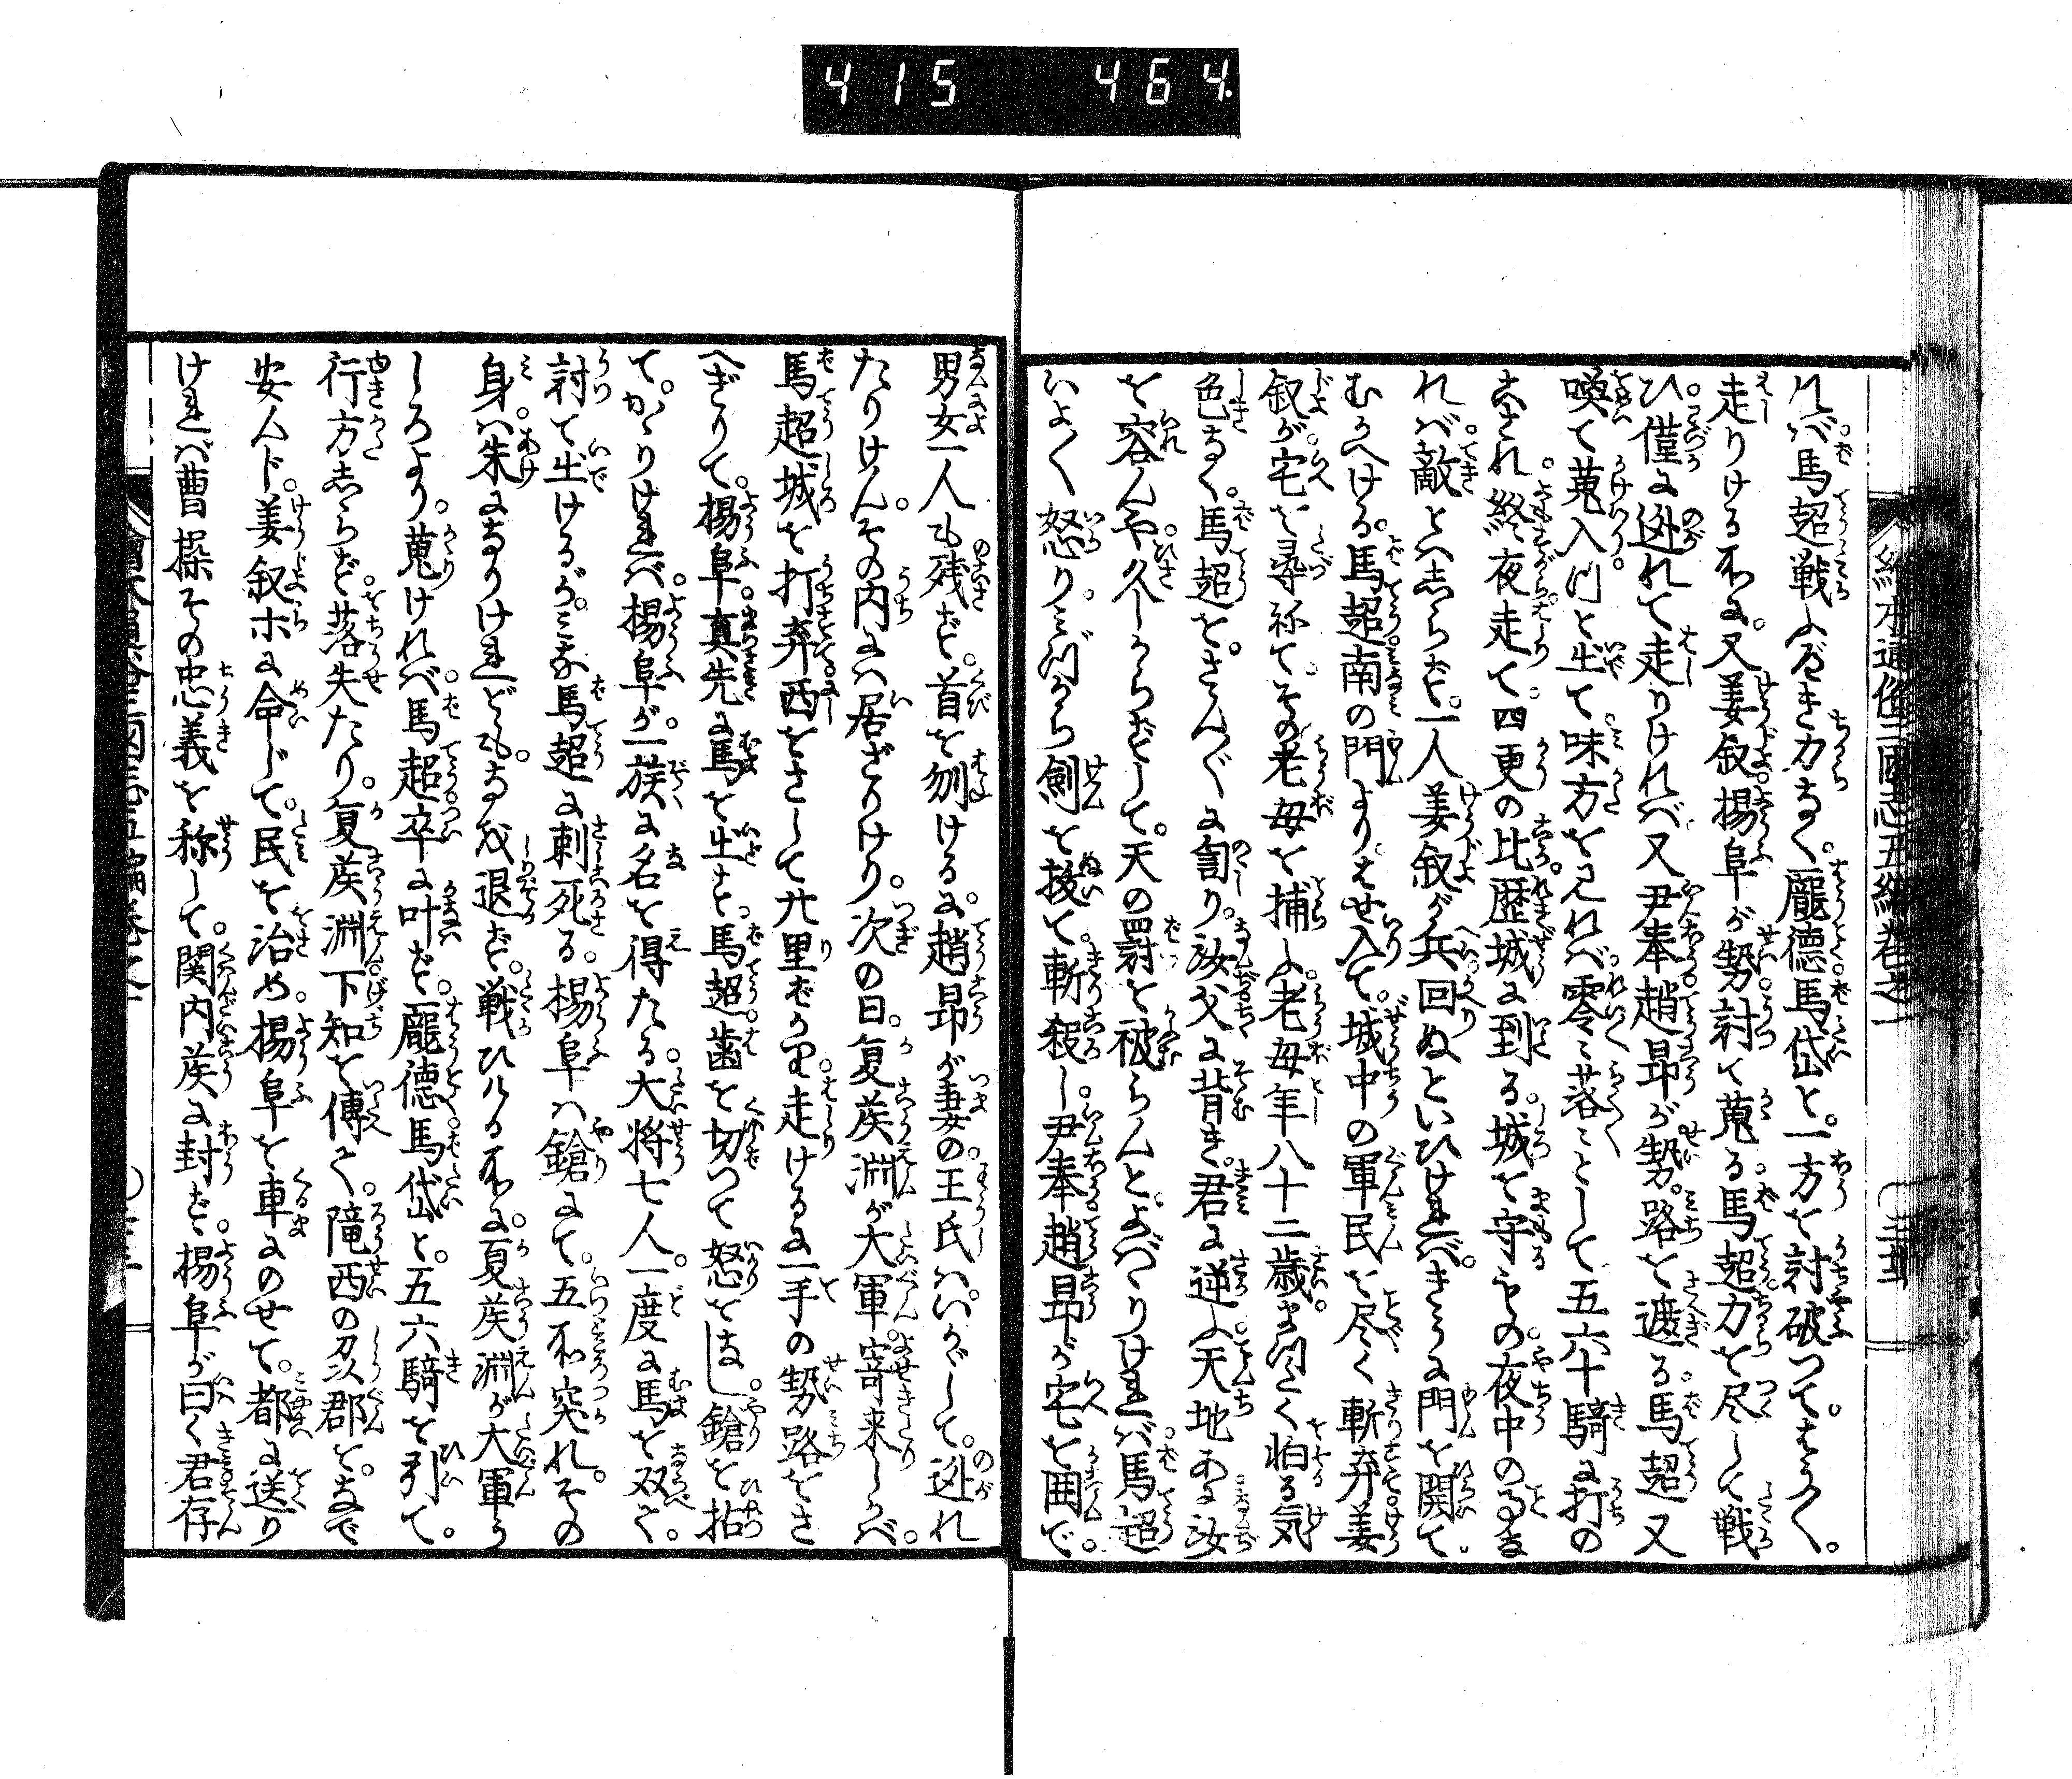 415 464
絵本通俗三国志五編巻之一
れば馬超戦ふべき力なく。龐徳馬岱と。一方を討破つてはるく
走りける所に。又姜叙楊阜が勢討て蒐る。馬超力を尽して戦
ひ。僅に迯れて走りければ又尹奉趙昂が勢。路を遮る。馬超又
喚て蒐入りつ出て。味方を見れば零々落々として五六十騎に打の
され。終夜走て。四更の比歴城に到る。城を守るもの。夜中の事な
れば。敵とはしらず。一人姜叙が兵回ぬといひければ。門を開て。
むかへける。馬超南の門よりはせ入て。城中の軍民を尽く斬弃。姜
叙が宅を尋ねて。その老母を捕ふ。老母年八十二歳。まつたく怕る気
色なく。馬超を。さんぐに詈り。汝父に背き。君に逆ふ。天地あに汝
を容んや。久しからずして。天の罸を被らんと。よばゝりければ。馬超
いよく怒り。みづから剣を抜て。斬殺し。尹奉趙昂が宅を囲で。
男女一人も残ず。首を刎ける。に趙昂が妻の王氏はいかゞして。迯れ
たりけん。その内には居ざりけり。次の日。夏侯淵が大軍寄来しかば。
馬超城を打弃。西をさして廿里ばかり走けるに一手の勢路をさ
へぎりて。楊阜。真先に馬を出す。馬超歯を切つて怒をなし。鎗を拈
て。かゝりければ。楊阜が一族に名を得たる大将七人。一度に馬を双て。
討て出けるが。みな馬超に刺死る。楊阜は鎗にて。五所突れ。その
身は朱になりけれども。なを退ず。戦ひける所に。夏侯淵が大軍う
しろより。蒐りければ。馬超卒に叶ず。龐徳馬岱と。五六騎を引て。
行方しらず。落失たり。夏侯淵下知を伝て。隴西の郡を。なで
安んじ。姜叙ホに命じて。民を治め。楊阜を車にのせて。都に送り
ければ曹操その忠義を称して。関内侯に封ず。楊阜が曰く君存